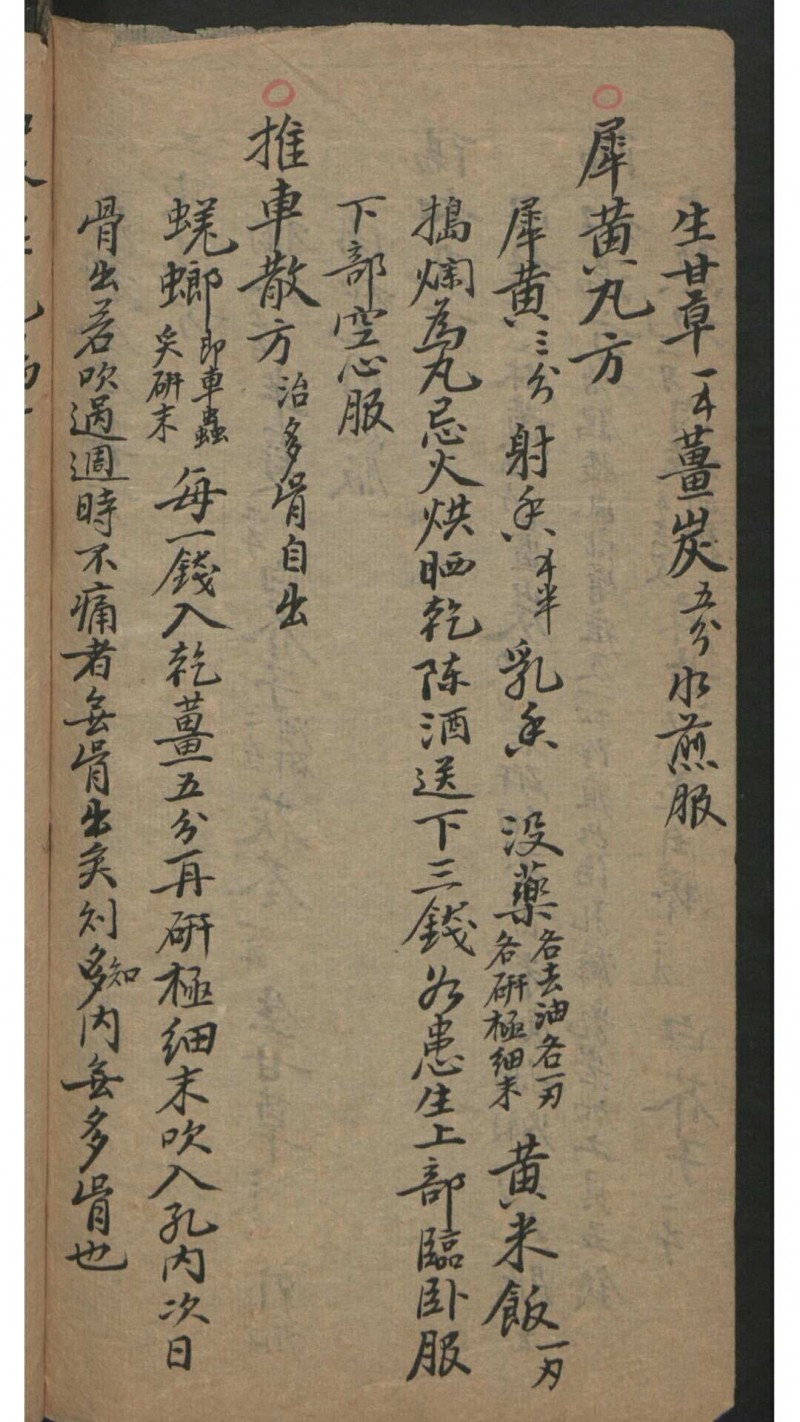 生甘草一才薑炭五分水煎服
○犀黄丸方
犀黄三分射香才半乳香 没藥各去油各一刃各研極細末黄米飯一刃
搗爛為丸忌火烘晒乾陈酒送下三錢如患生上部臨卧服
下部空心服
○推車散方治多骨自出
蜣螂即車蟲炙研末每一錢入乾薑五分再研極細末吹入孔内次日
骨出若吹過週時不痛者無骨出矣則知多内無多骨也